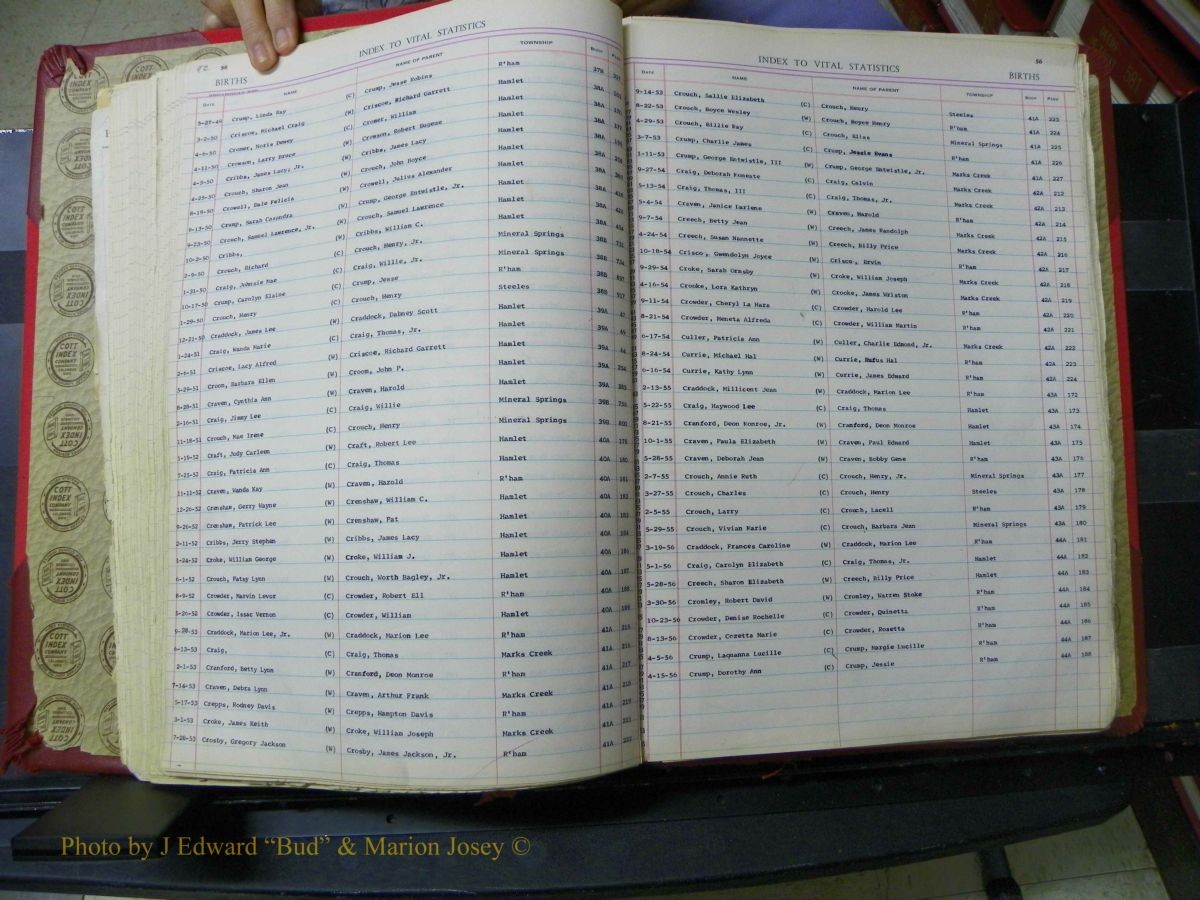 56
INDEX TO VITAL STATISTICS
BIRTHS
DATE NAME NAME OF PARENT TOWNSHIP BOOK PAGE
5-27-49 Crump, Linda Kay (C) Crump, Jesse Robins R'ham 37B
3-2-50 Criscoe, Michael Craig (W) Criscoe, Richard Garrett Hamlet 38A
4-6-50 Cromer, Noris Dewey (W) Cromer, William Hamlet 38A
4-11-50 Crowson, Larry Bruce (W) Crowson, Robert Eugene Hamlet 38A
4-3-50 Cribbs, James Lacy, Jr. (W) Cribbs, James Lacy Hamlet 38A
4-25-50 Crouch, Sharon Jean (W) Crouch, John Boyce Hamlet 38A
8-19-50 Crowell, Dale Felicia (W) Crowell, Julius Alexander Hamlet 38A
9-13-50 Crump, Sarah Casandra (W) Crump, George Entwistle, Jr. Hamlet 38A
9-23-50 Crouch, Samuel Lawrence, Jr. (W) Crouch, Samuel Lawrence Hamlet 38A
10-2-50 Cribbs, (W) Cribbs, William C. Hamlet 38A
2-9-50 Crouch, Richard (C) Crouch, Henry, Jr. Mineral Springs 38B
1-31-50 Craig, Johnsie Mae (C) Craig, Willie, Jr. Mineral Springs 38B
10-17-50 Crump, Carolyn Elaine (C) Crump, Jesse R'ham 38B
1-29-50 Crouch, Henry (C) Crouch, Henry Steeles 38B 917
12-21-50 Craddock, James Lee (W) Craddock, Dabney Scott Hamlet 39A
1-24-51 Craig, Wanda Marie (C) Craig, Thomas, Jr. Hamlet 39A
2-6-51 Criscoe, Lacy Alfred (W) Criscoe, Richard Garrett Hamlet 39A
5-29-51 Croom, Barbara Ellen (W) Croom, John P. Hamlet 39A
8-28-51 Craven, Cynthia Ann (W) Craven, Harold Hamlet 39A
2-16-51 Craig, Jimmy Lee (C) Craig, Willie Mineral Springs 39B
11-18-51 Crouch, Mae Irene (C) Crouch, Henry Mineral Springs 39B
1-19-52 Craft, Judy Carleen (W) Craft, Robert Lee Hamlet 40A
7-25-52 Craig, Patricia Ann (C) Craig, Thomas Hamlet 40A 180
11-12-52 Craven, Wanda Kay (W) Craven, Harold R'ham 40A 181
12-20-52 Crenshaw, Gerry Wayne (W) Crenshaw, William C. Hamlet 40A 182
9-26-52 Crenshaw, Patrick Lee (W) Crenshaw, Pat Hamlet 40A
2-11-52 Cribbs, Jerry Stephen (W) Cribbs, James Lacy Hamlet 40A
1-24-52 Croke, William George (W) Croke, William J. Hamlet 40A
6-1-52 Crouch, Patsy Lynn (W) Crouch, Worth Bagley, Jr. Hamlet 40A 187
8-9-52 Crowder, Marvin Levor (C) Crowder, Robert Ell R'ham 40A 188
5-20-52 Crowder, Issac Vernon (C) Crowder, William Hamlet 40A 189
9-28-53 Craddock, Marion Lee, Jr. (W) Craddock, Marion Lee R'ham 41A 215
6-13-53 Craig, (C) Craig, Thomas Marks Creek 41A
2-1-53 Cranford, Betty Lynn (W) Cranford, Deon Monroe R'ham 41A 217
7-14-53 Craven, Debra Lynn (W) Craven, Arthur Frank Marks Creek 41A 218
5-17-53 Crepps, Rodney Davis (W) Crepps, Hampton Davis R'ham 41A 219
3-1-53 Croke, James Keith (W) Croke, William Joseph Marks Creek 41A
7-28-53 Crosby, Gregory Jackson (W) Crosby, James Jackson, Jr. R'ham 41A 222
56
INDEX TO VITAL STATISTICS
BIRTHS
DATE NAME NAME OF PARENT TOWNSHIP BOOK PAGE
9-14-53 Crouch, Sallie Elizabeth (C) Crouch, Henry Steeles 41A 223
8-22-53 Crouch, Royce Wesley (W) Crouch, Boyce Henry R'ham 41A 224
4-29-53 Crouch, Billie Ray (C) Crouch, Elias Mineral Springs 41A 225
3-7-53 Crump, Charlie James (C) Crump, Jessie Evans R'ham 41A 226
1-11-53 Crump, George Entwistle, III (W) Crump, George Entwistle, Jr. Marks Creek 41A 227
9-27-54 Craig, Deborah Roneate (C) Craig, Calvin Marks Creek 42A 212
5-13-54 Craig, Thomas, III (C) Craig, Thomas, Jr. Marks Creek 42A 213
5-4-54 Craven, Janice Earlene (W) Craven, Harold R'ham 42A 214
9-7-54 Creech, Betty Jean (W) Creech, James Randolph Marks Creek 42A 215
4-24-54 Creech, Susan Nannette (W) Creech, Billy Price Marks Creek 42A 216
10-18-54 Crisco, Gwendolyn Joyce (W) Crisco, Ervin R'ham 42A 217
9-29-54 Croke, Sarah Ormsby (W) Croke, William Joseph Marks Creek 42A 218
4-16-54 Crooke, Lora Kathryn (W) Crooke, James Wriston Marks Creek 42A 219
9-11-54 Crowder, Cheryl La Mara (C) Crowder, Harold Lee R'ham 42A 220
8-21-54 Crowder, Meneta Alfreda (C) Crowder, William Martin R'ham 42A 221
6-17-54 Culler, Patricia Ann (W) Culler, Charlie Edmond, Jr. Marks Creek 42A 222
8-24-54 Currie, Michael Hal (W) Currie, Rufus Hal R'ham 42A 223
6-16-54 Currie, Kathy Lynn (W) Currie, James Edward R'ham 42A 224
2-13-55 Craddock, Millicent Jean (W) Craddock, Marion Lee R'ham 43A 172
5-22-55 Craig, Haywood Lee (C) Craig, Thomas Hamlet 43A 173
8-21-55 Cranford, Deon Monroe, Jr. (W) Cranford, Deon Monroe Hamlet 43A 174
10-1-55 Craven, Paula Elizabeth (W) Craven, Paul Edward Hamlet 43A 175
5-28-55 Craven, Deborah Jean (W) Craven, Bobby Gene R'ham 43A 176
2-7-55 Crouch, Annie Ruth (C) Crouch, Henry, Jr. Mineral Springs 43A 177
3-27-55 Crouch, Charles (C) Crouch, Henry Steeles 43A 178
2-5-55 Crouch, Larry (C) Crouch, Lacell R'ham 43A 179
5-29-55 Crouch, Vivian Marie (C) Crouch, Barbara Jean Mineral Springs 43A 180
3-19-56 Craddock, Frances Caroline (W) Craddock, Marion Lee R'ham 44A 181
5-1-56 Craig, Carolyn Elizabeth (C) Craig, Thomas, Jr. Hamlet 44A 182
5-28-56 Creech, Sharon Elizabeth (W) Creech, Billy Price Hamlet 44A 183
3-30-56 Cromley, Robert David (W) Cromley, Warren Stoke R'ham 44A 184
10-23-56 Crowder, Denise Rochelle (C) Crowder, Quinetta R'ham 44A 185
8-13-56 Crowder, Cozetta Marie (C) Crowder, Rosetta R'ham 44A 186
4-5-56 Crump, Laquanna Lucille (C) Crump, Margie Lucille R'ham 44A 187
4-15-56 Crump, Dorothy Ann (C) Crump, Jessie R'ham 44A 188
COTT INDEX COMPANY
Photo by J Edward “Bud” & Marion Josey ©